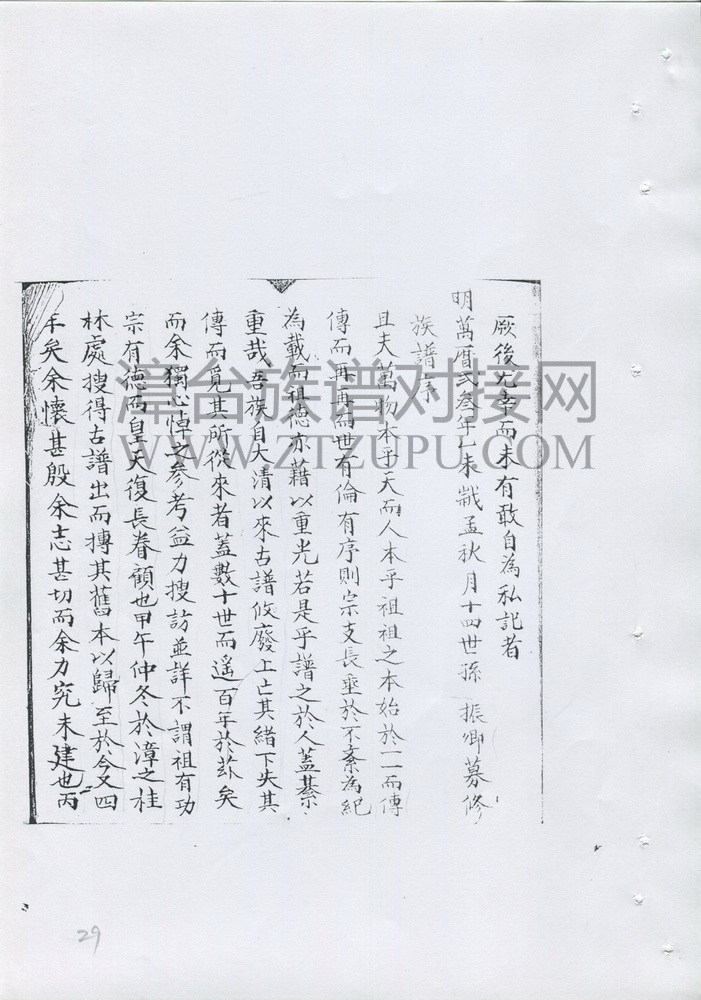 厥後尤幸而未有敢自為私記者
明萬曆弍叁年乙未歲孟秋月十四世孫 振卿募修
族譜序
且夫萬物本乎天而人本乎祖祖之本始於一一而傳
傳而再再而世有倫有序則宗支長垂於不紊為紀
為載而祖德亦藉以重光若是乎譜之於人蓋綦
重哉吾族自大清以來古譜攸廢上亡其緒下失其
傳而覓其所從來者蓋數十世而遙百年於茲矣
而余獨心悼之參考益力搜訪並詳不謂祖有功
宗有德而皇天復長眷顧也甲午仲冬於漳之桂
林處搜得古譜出而摶其舊本以歸至於今又四
年矣余懷甚殷余志甚切而余力究未建也丙
漳台族谱对接网
WWW.ZTZUPU.COM
29